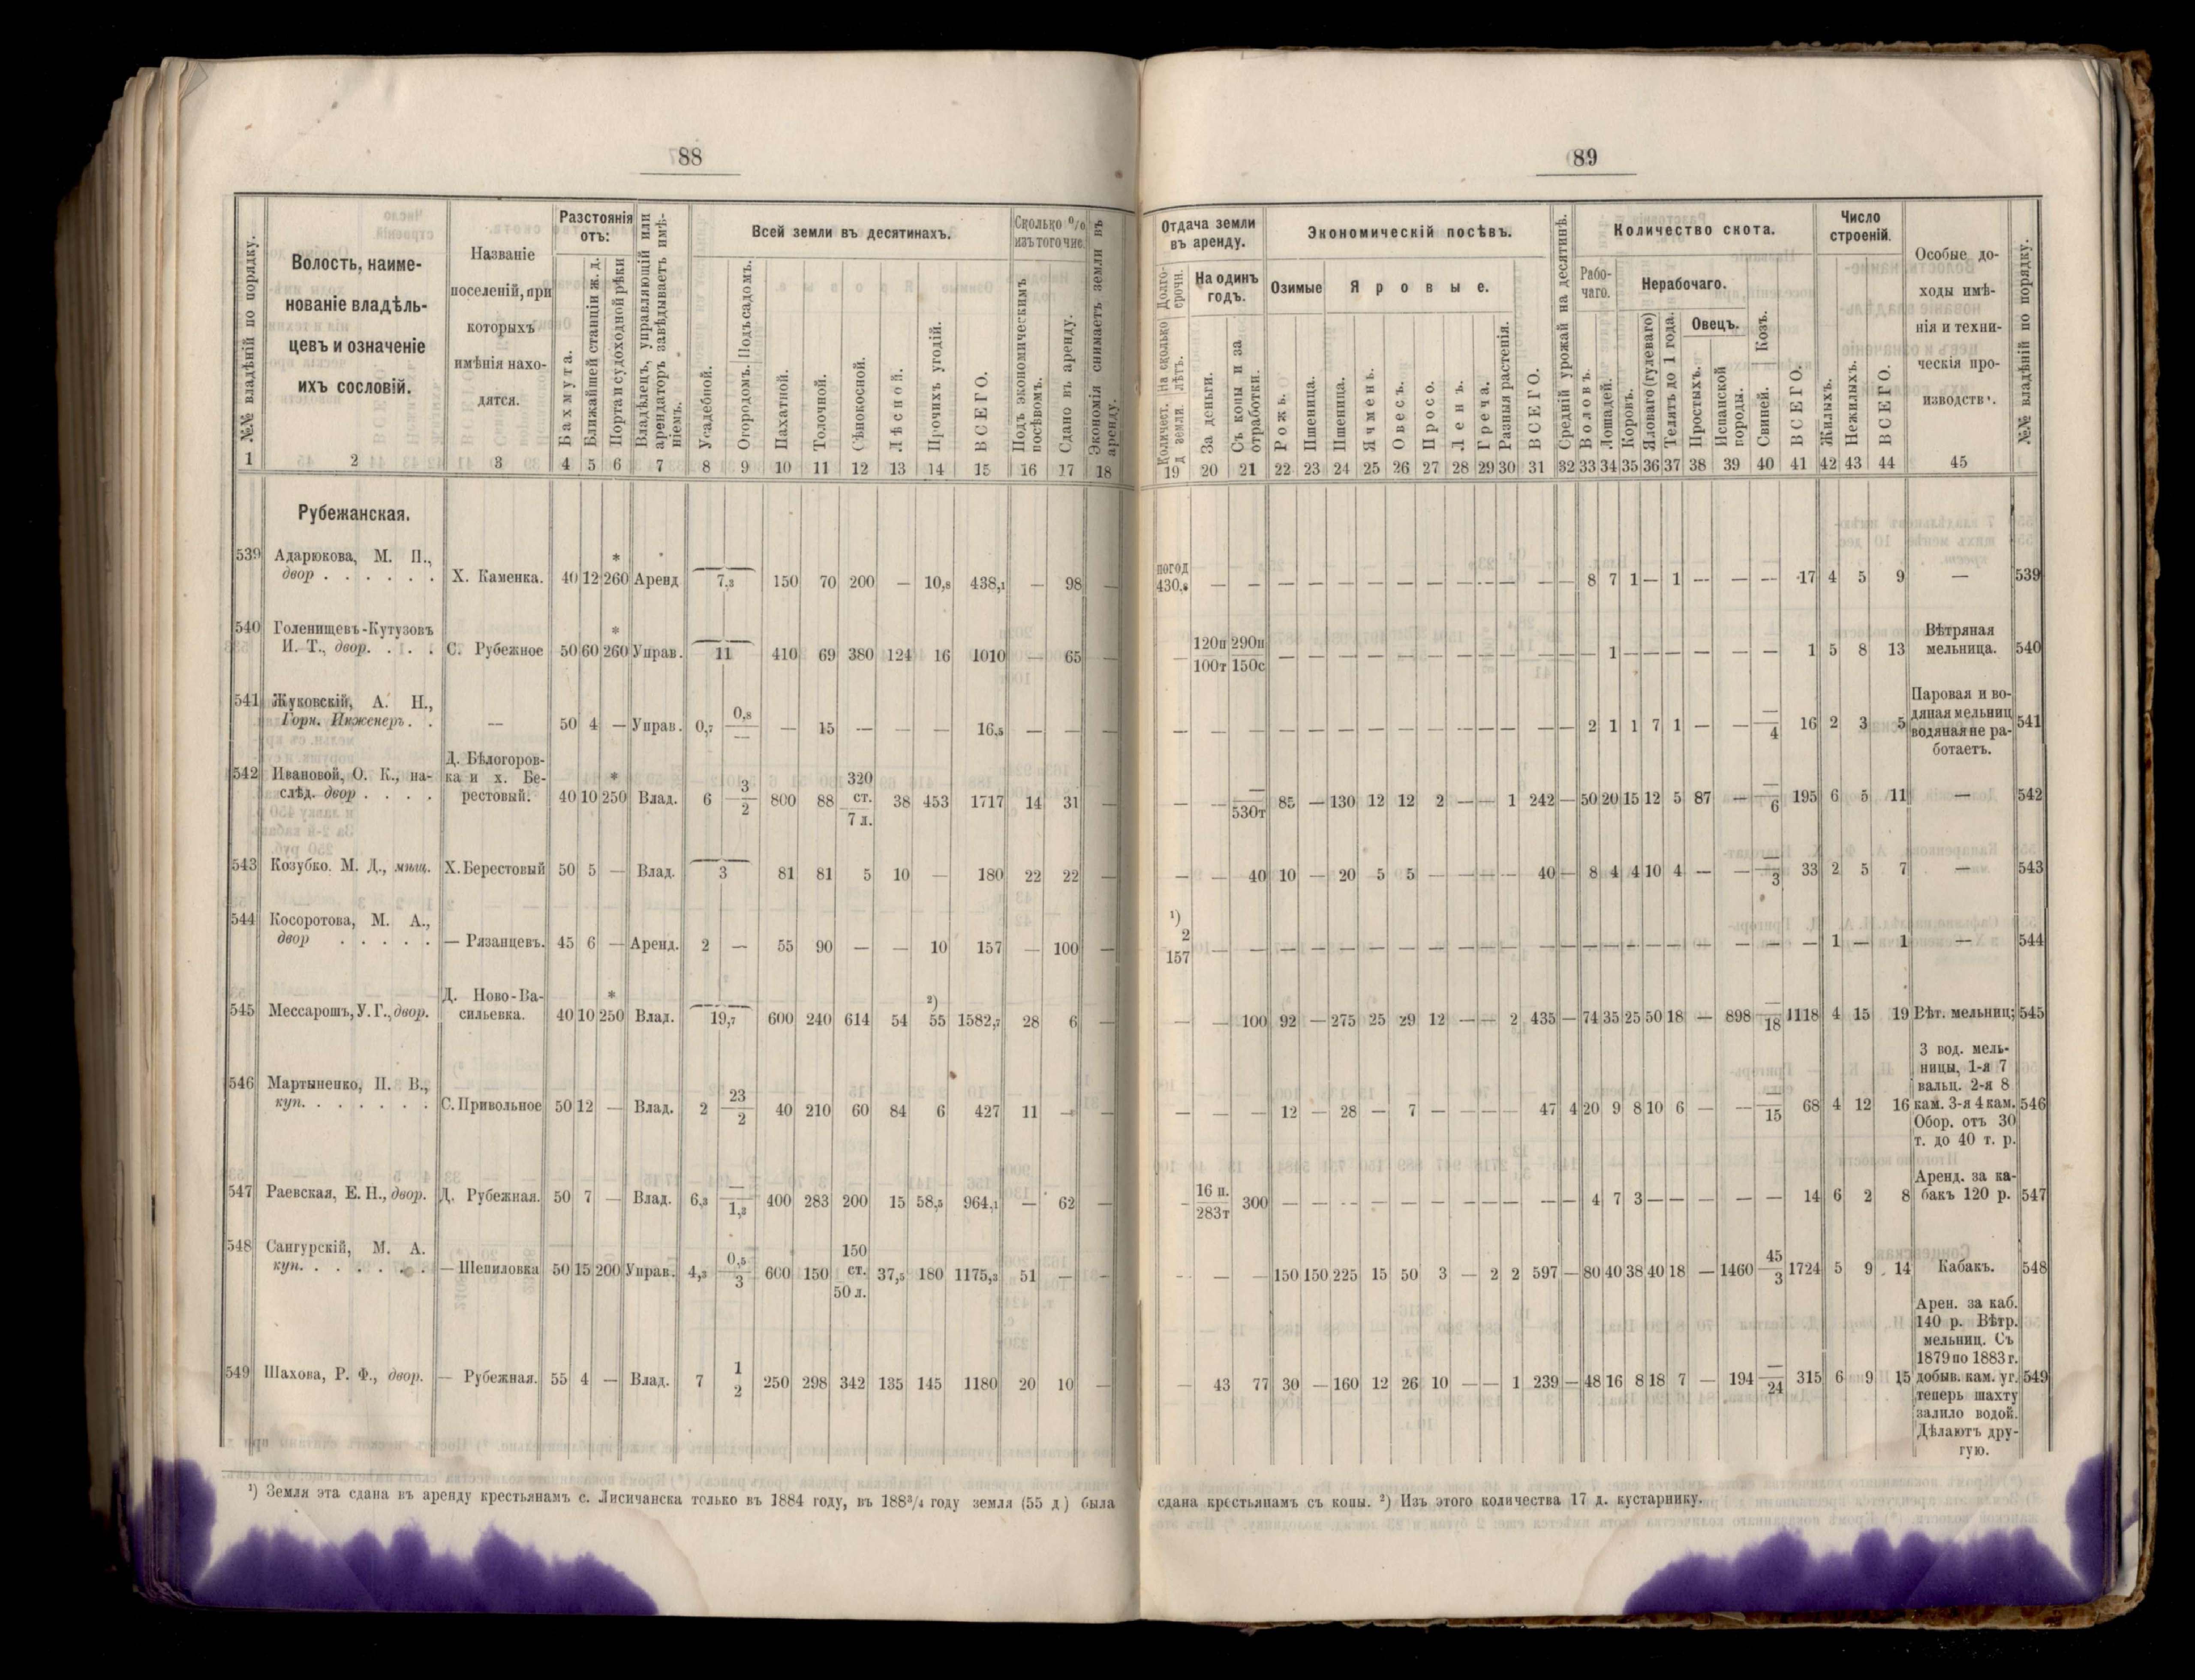 88
№№ владѣній по порядку.
Волость, наиме-
нованіе владѣль-
цевъ и означеніе
ихъ сословій.
Названіе
поселеній, при
которыхъ
имѣнія нахо-
дятся.
Разстоянія
отъ:
Бахмута.
Ближайшей станціи ж. д.
Порта и судоходной рѣки
Владѣлецъ, управляющій или
арендаторъ завѣдываетъ имѣ-
ніемъ.
Всей земли въ десятинахъ.
Усадебной.
Огородомъ. Подъ садомъ.
Пахатной.
Толочной.
Сѣнокосной.
Лѣсной.
Прочихъ угодій.
ВСЕГО.
Сколько %
изъ того чис.
Подъ экономическимъ
посѣвомъ.
Сдано въ аренду.
Экономія снимаетъ земли въ
аренду.
1 2 3 4 5 6 7 8 9 10 11 12 13 14 15 16 17 18
Рубежанская.
539 Адарюкова, М. П.,
двор . . . . . . Х. Каменка. 40 12 260* Аренд 7,3 150 70 200 — 10,8 438,1 — 98 —
540 Голенищевъ-Кутузовъ
И. Т., двор. . . . С. Рубежное 50 60 260* Управ. 11 410 69 380 124 16 1010 — 65 —
541 Жуковскій, А. Н.,
Горн. Инженеръ. . — 50 4 — Управ. 0,7 0,8/— — 15 — — — 16,5 — — —
542 Ивановой, О. К., на-
слѣд. двор . . . . Д. Бѣлогоров-
ка и х. Бе-
рестовый. 40 10 250* Влад. 6 3/2 800 88 320 ст. 7 л. 38 453 1717 14 31 —
543 Козубко. М. Д., мѣщ. Х. Берестовый 50 5 — Влад. 3 81 81 5 10 — 180 22 22 —
544 Косоротова, М. А.,
двор . . . . . — Рязанцевъ. 45 6 — Аренд. 2 — 55 90 — — 10 157 — 100 —
545 Мессарошъ, У. Г., двор. Д. Ново-Ва-
сильевка. 40 10 250* Влад. 19,7 600 240 614 54 ²) 55 1582,7 28 6 —
546 Мартыненко, П. В.,
куп. . . . . . . С. Привольное 50 12 — Влад. 2 23/2 40 210 60 84 6 427 11 — —
547 Раевская, Е. Н., двор. Д. Рубежная. 50 7 — Влад. 6,3 —/1,3 400 283 200 15 58,5 964,1 — 62 —
548 Сангурскій, М. А.
куп. . . . . . . — Шепиловка 50 15 200 Управ. 4,3 0,5/3 600 150 150 ст. 50 л. 37,5 180 1175,3 51 — —
549 Шахова, Р. Ф., двор. — Рубежная. 55 4 — Влад. 7 1/2 250 298 342 135 145 1180 20 10 —
¹) Земля эта сдана въ аренду крестьянамъ с. Лисичанска только въ 1884 году, въ 188³/₄ году земля (55 д) была
89
Отдача земли
въ аренду.
Долго-
срочн.
Количест. На сколько
д земли. лѣтъ.
На одинъ
годъ.
За деньги.
Съ копы и за
отработки.
Экономическій посѣвъ.
Озимые
Яровые.
Рожь.
Пшеница.
Пшеница.
Ячмень.
Овесъ.
Просо.
Ленъ.
Греча.
Разныя растенія.
ВСЕГО.
Средній урожай на десятинѣ.
Количество скота.
Рабо-
чаго.
Нерабочаго.
Воловъ.
Лошадей.
Коровъ.
Яловаго (гулеваго)
Телятъ до 1 года.
Овецъ.
Простыхъ.
Испанской
породы.
Козъ.
Свиней.
ВСЕГО.
Число
строеній.
Жилыхъ.
Нежилыхъ.
ВСЕГО.
Особые до-
ходы имѣ-
нія и техни-
ческія про-
изводств.
№№ владѣній по порядку.
19 20 21 22 23 24 25 26 27 28 29 30 31 32 33 34 35 36 37 38 39 40 41 42 43 44 45
погод
430,8 — — — — — — — — — — — — — 8 7 1 — 1 — — — 17 4 5 9 — 539
— 120п/100т 290п/150с — — — — — — — — — — — — 1 — — — — — — 1 5 8 13 Вѣтряная
мельница. 540
— — — — — — — — — — — — — — 2 1 1 7 1 — — —/4 16 2 3 5 Паровая и во-
дяная мельниц
водяная не ра-
ботаетъ. 541
— — —/530т 85 — 130 12 12 2 — — 1 242 — 50 20 15 12 5 87 — —/6 195 6 5 11 — 542
— — 40 10 — 20 5 5 — — — — 40 — 8 4 4 10 4 — — —/3 33 2 5 7 — 543
¹)
2
157 — — — — — — — — — — — — — — — — — — — — — — 1 — 1 — 544
— — 100 92 — 275 25 29 12 — — 2 435 — 74 35 25 50 18 — 898 —/18 1118 4 15 19 Вѣт. мельниц; 545
— — — 12 — 28 — 7 — — — — 47 4 20 9 8 10 6 — — —/15 68 4 12 16 3 вод. мель-
ницы, 1-я 7
вальц. 2-я 8
кам. 3-я 4 кам.
Обор. отъ 30
т. до 40 т. р. 546
— 16 п./283т 300 — — — — — — — — — — — 4 7 3 — — — — — 14 6 2 8 Аренд. за ка-
бакъ 120 р. 547
— — — 150 150 225 15 50 3 — 2 2 597 — 80 40 38 40 18 — 1460 45/3 1724 5 9 14 Кабакъ. 548
— 43 77 30 — 160 12 26 10 — — 1 239 — 48 16 8 18 7 — 194 —/24 315 6 9 15 Арен. за каб.
140 р. Вѣтр.
мельниц. Съ
1879 по 1883 г.
добыв. кам. уг.
теперь шахту
залило водой.
Дѣлаютъ дру-
гую. 549
сдана крестьянамъ съ копы. ²) Изъ этого количества 17 д. кустарнику.